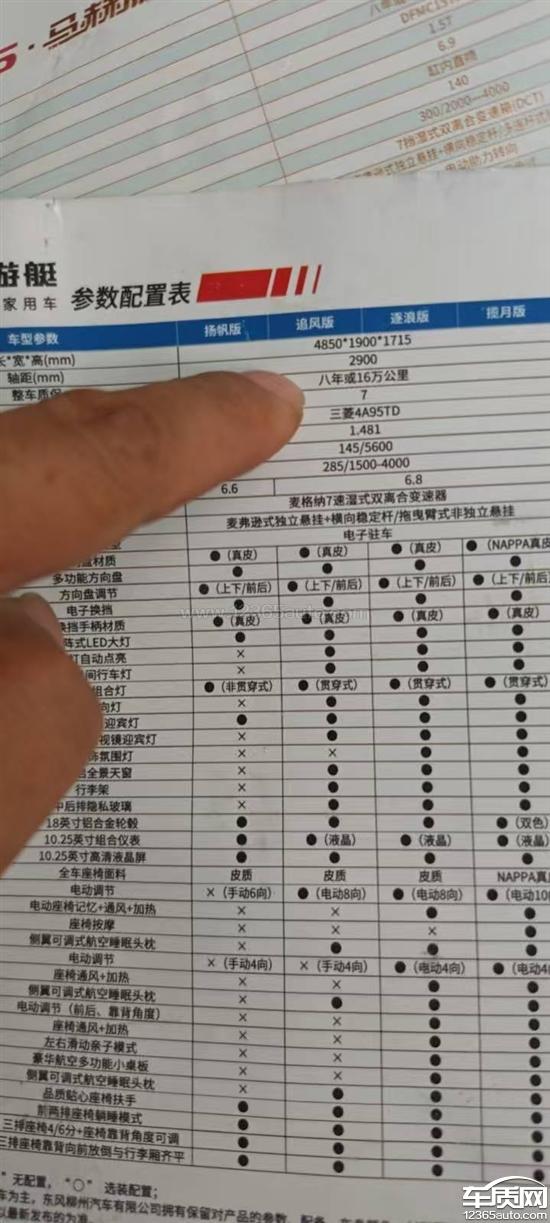 5·马赫
DFMC15
1.5T
6.9
缸内直喷
140
300/2000—4000
7挡湿式双离合变速箱(DCT)
独立悬挂+横向稳定杆/多连杆式
电动助力转向
游艇
家用车 参数配置表
车型参数 扬帆版 追风版 逐浪版 揽月版
长*宽*高(mm) 4850*1900*1715
轴距(mm) 2900
整车质保 八年或16万公里
7
三菱4A95TD
1.481
145/5600
285/1500-4000
6.6 6.8
麦格纳7速湿式双离合变速器
麦弗逊式独立悬挂+横向稳定杆/拖曳臂式非独立悬挂
电子驻车
材质 ●(真皮) ●(真皮) ●(真皮) ●(NAPPA真皮
多功能方向盘 ● ● ● ●
方向盘调节 ●(上下/前后) ●(上下/前后) ●(上下/前后) ●(上下/前后)
电子换挡 ● ● ● ●
换挡手柄材质 ●(真皮) ●(真皮) ●(真皮) ●(真皮)
阵式LED大灯 ● ● ● ●
灯自动点亮 × ● ● ●
间行车灯 × ● ● ●
组合灯 ●(非贯穿式) ●(贯穿式) ●(贯穿式) ●(贯穿式)
向灯 × ● ● ●
迎宾灯 ● ● ● ●
视镜迎宾灯 × ● ● ●
饰氛围灯 × × ● ●
全景天窗 × ● ● ●
行李架 × ● ● ●
中后排隐私玻璃 × ● ● ●
18英寸铝合金轮毂 ● ● ● ●(双色)
10.25英寸组合仪表 ● ●(液晶) ●(液晶) ●(液晶)
10.25英寸高清液晶屏 ● ● ● ●
全车座椅面料 皮质 皮质 皮质 NAPPA真皮
电动调节 ×(手动6向) ●(电动8向) ●(电动8向) ●(电动10向
电动座椅记忆+通风+加热 × × ● ●
座椅按摩 × × × ●
侧翼可调式航空睡眠头枕 × ● ● ●
电动调节 ×(手动4向) ×(手动4向) ●(电动4向) ●(电动4向
座椅通风+加热 × × ● ●
侧翼可调式航空睡眠头枕 × ● ● ●
电动调节(前后、靠背角度) × × ● ●
座椅通风+加热 × × ● ●
左右滑动亲子模式 × × ● ●
豪华航空多功能小桌板 × × ● ●
侧翼可调式航空睡眠头枕 × ● ● ●
品质贴心座椅扶手 ● ● ● ●
前两排座椅躺睡模式 ● ● ● ●
三排座椅4/6分+座椅靠背角度可调 ● ● ● ●
三排座椅靠背向前放倒与行李厢齐平 ● ● ● ●
”无配置，“○”选装配置；
车为主，东风柳州汽车有限公司拥有保留对产品的参数、配备
以最新发布的为准
www.12365auto.com
车质网
12365auto.com